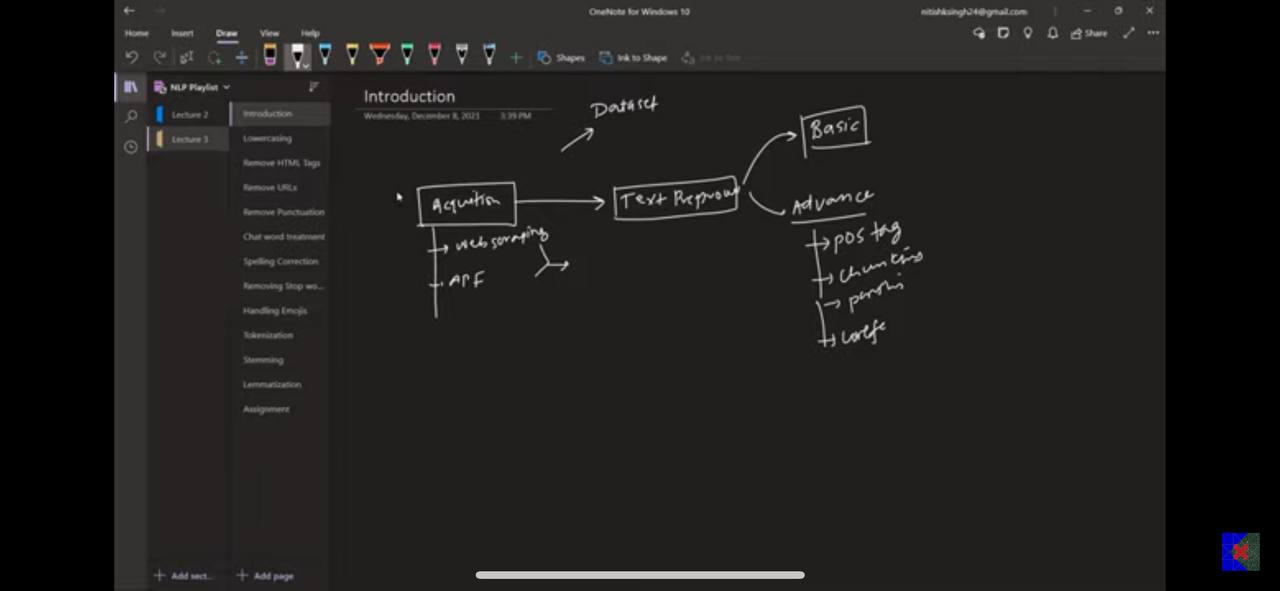 OneNote for Windows 10
nitishksingh24@gmail.com
Home Insert Draw View Help
Share
Shapes Ink to Shape
NLP Playlist
Lecture 2
Lecture 3
Introduction
Lowercasing
Remove HTML Tags
Remove URLs
Remove Punctuation
Chat word treatment
Spelling Correction
Removing Stop wo...
Handling Emojis
Tokenization
Stemming
Lemmatization
Assignment
Add sect...
Add page
Introduction
Wednesday, December 8, 2021 3:39 PM
Dataset
Basic
Text
Advance
pos tag